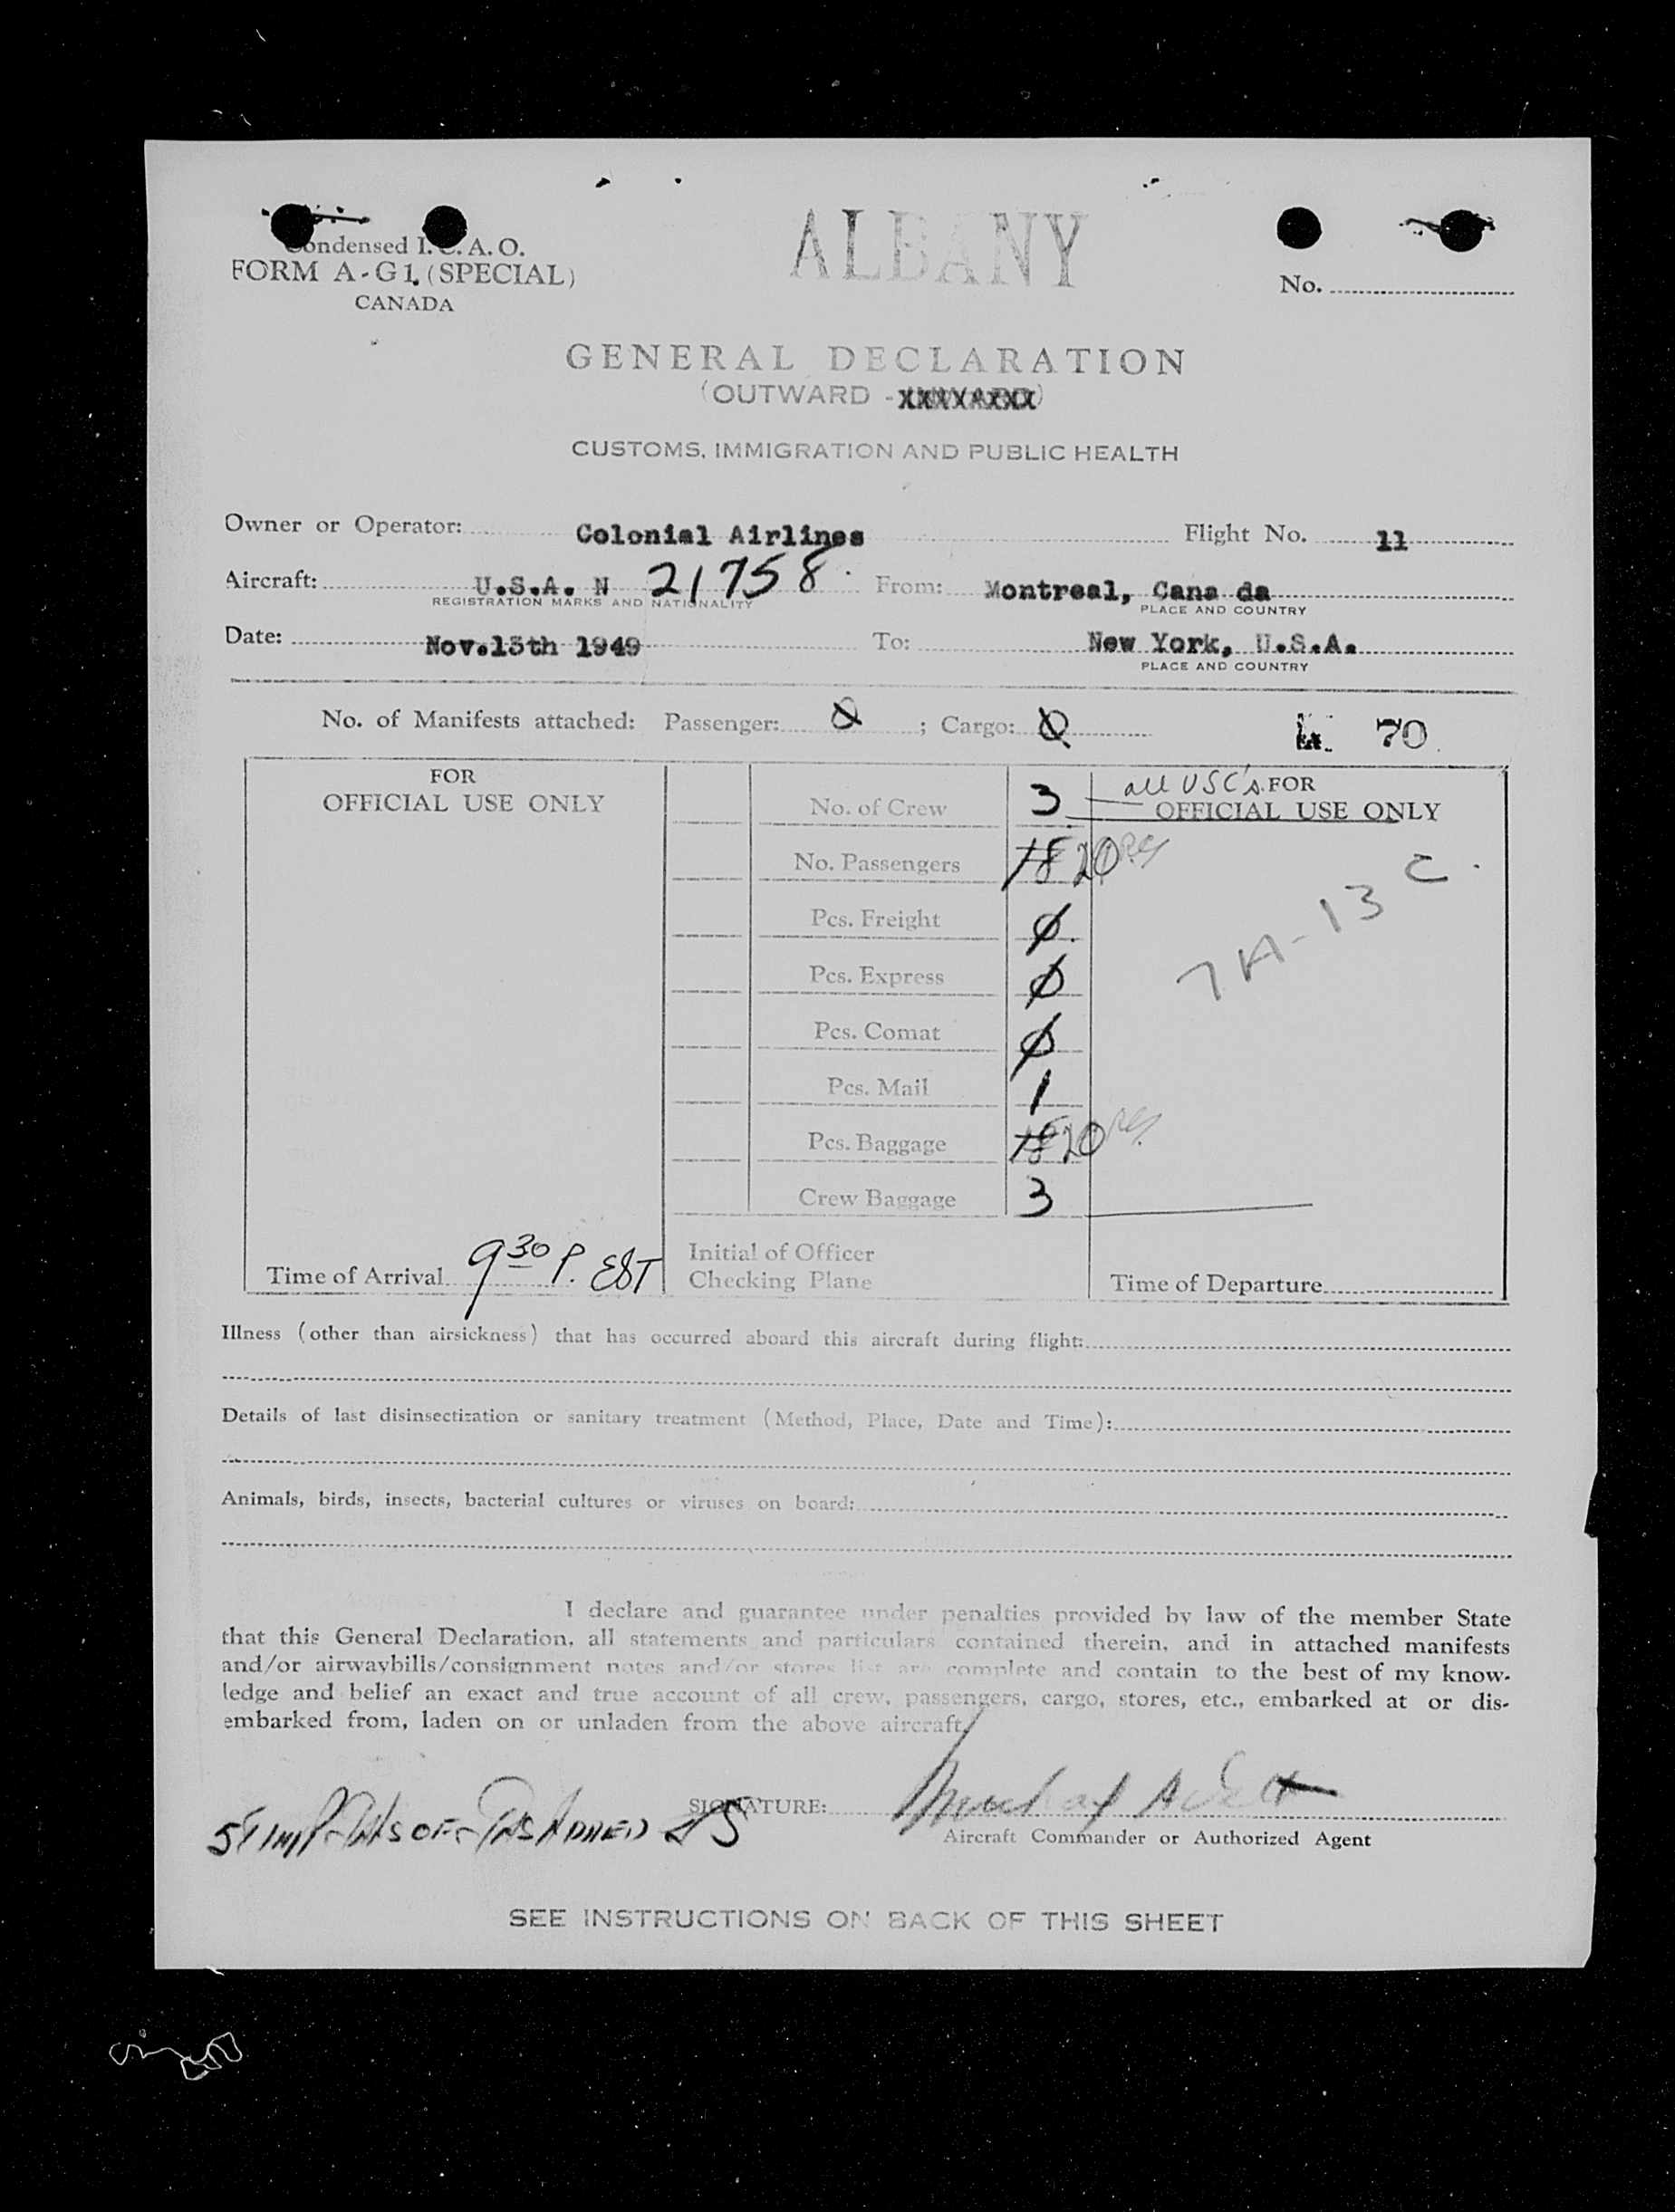 ALBANY
Condensed I.C.A.O.
FORM A-G1. (SPECIAL)
CANADA
No.
GENERAL DECLARATION
(OUTWARD -
CUSTOMS, IMMIGRATION AND PUBLIC HEALTH
Owner or Operator: Colonial Airlines Flight No. 11
Aircraft: U.S.A. N 21758 From: Montreal, Cana da
REGISTRATION MARKS AND NATIONALITY PLACE AND COUNTRY
Date: Nov.15th 1949 To: New York, U.S.A.
PLACE AND COUNTRY
No. of Manifests attached: Passenger: 0 ; Cargo: 0 70
FOR
OFFICIAL USE ONLY
No. of Crew 3
all USC's. FOR
OFFICIAL USE ONLY
No. Passengers 18 20
7A-13 C.
Pcs. Freight 0
Pcs. Express 0
Pcs. Comat 0
Pcs. Mail 1
Pcs. Baggage 18 20
Crew Baggage 3
Time of Arrival 9 30 P. EST
Initial of Officer
Checking Plane
Time of Departure
Illness (other than airsickness) that has occurred aboard this aircraft during flight:
Details of last disinsectization or sanitary treatment (Method, Place, Date and Time):
Animals, birds, insects, bacterial cultures or viruses on board:
I declare and guarantee under penalties provided by law of the member State
that this General Declaration, all statements and particulars contained therein, and in attached manifests
and/or airwaybills/consignment notes and/or stores list are complete and contain to the best of my know-
ledge and belief an exact and true account of all crew, passengers, cargo, stores, etc., embarked at or dis-
embarked from, laden on or unladen from the above aircraft.
SIGNATURE:
Aircraft Commander or Authorized Agent
SEE INSTRUCTIONS ON BACK OF THIS SHEET